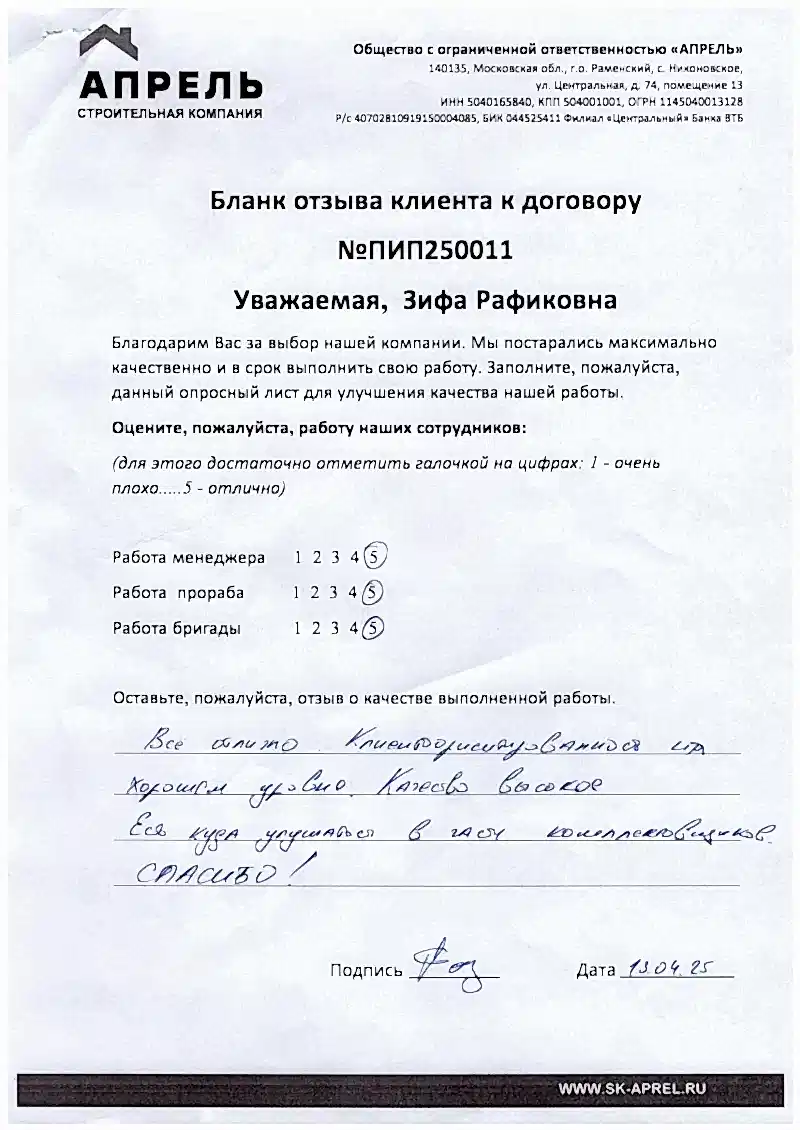 АПРЕЛЬ
СТРОИТЕЛЬНАЯ КОМПАНИЯ
Общество с ограниченной ответственностью «АПРЕЛЬ»
140135, Московская обл., г.о. Раменский, с. Нихоновское,
ул. Центральная, д. 74, помещение 13
ИНН 5040165840, КПП 504001001, ОГРН 1145040013128
Р/с 40702810919150004085, БИК 044525411 Филиал «Центральный» Банка ВТБ
Бланк отзыва клиента к договору
№ПИП250011
Уважаемая, Зифа Рафиковна
Благодарим Вас за выбор нашей компании. Мы постарались максимально
качественно и в срок выполнить свою работу. Заполните, пожалуйста,
данный опросный лист для улучшения качества нашей работы.
Оцените, пожалуйста, работу наших сотрудников:
(для этого достаточно отметить галочкой на цифрах: 1 - очень
плохо.....5 - отлично)
Работа менеджера 1 2 3 4 5
Работа прораба 1 2 3 4 5
Работа бригады 1 2 3 4 5
Оставьте, пожалуйста, отзыв о качестве выполненной работы.
Все отлично. Клиентоориентированность на
хорошем уровне. Качество высокое
Есть куда улучшаться в части комплектовщиков.
СПАСИБО!
Подпись Дата 13.04.25
WWW.SK-APREL.RU